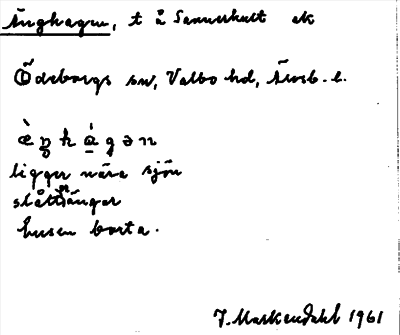 Änghagen, t å Sannerhult ek
Ödeborgs sn, Valbo hd, Älvsb. l.
æ̀ŋhágən
ligger nära sjön
slåttängar
husen borta.
J. Markendahl 1961